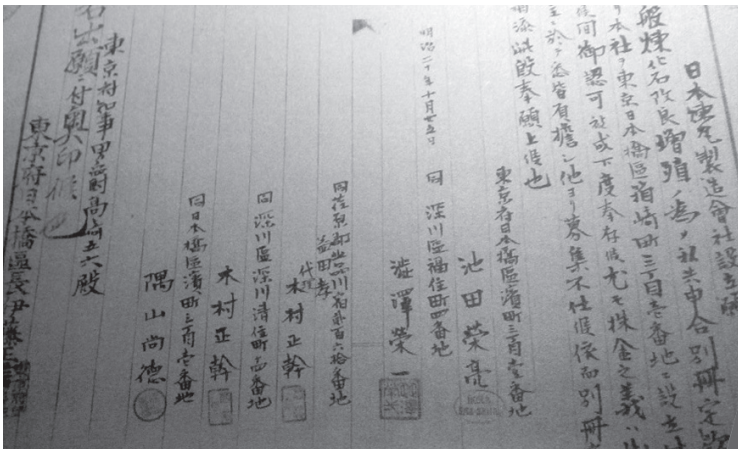 日本煉瓦製造會社設立願
般煉化石改良増殖ノ為メ私共申合別冊定款
本社ヲ東京日本橋區箱崎町三丁目壱番地ニ設立
間御認可被成下度奉存候尤モ株金之義ハ
ニ於テ悉皆負擔シ他ヨリ募集不仕候條而別冊
相添此段奉願上候也
東京府日本橋區濱町三丁目壱番地
池田榮亮
明治二十年十月廿五日
同深川區福住町四番地
澁澤榮一
同荏原郡品川
益田孝
代理
木村正幹
同深川區深川清住町十四番地
木村正幹
同日本橋區濱町三丁目壱番地
隅山尚德
東京府知事男爵髙﨑五六殿
出願ニ付奥印候也
東京府日本橋區長伊藤正